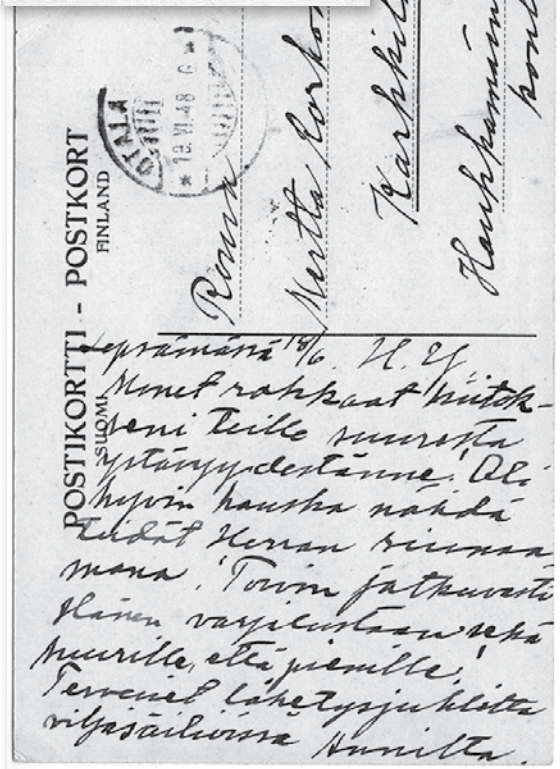 POSTIKORTTI - POSTKORT
SUOMI FINLAND
OTALA
19.VI.48
Rouva
Martta Korho
Karkkil
Haukkamäen
koul
18/6. H. Y.
Monet rakkaat kiitok-
seni Teille suuresta
ystävyydestänne! Oli
hyvin hauska nähdä
Teidät Herran siunaa-
mana! Toivon jatkuvasti
Hänen varjelustaan sekä
suurille, että pienille!
Terveiset lähetysjuhlilta
Annilta.